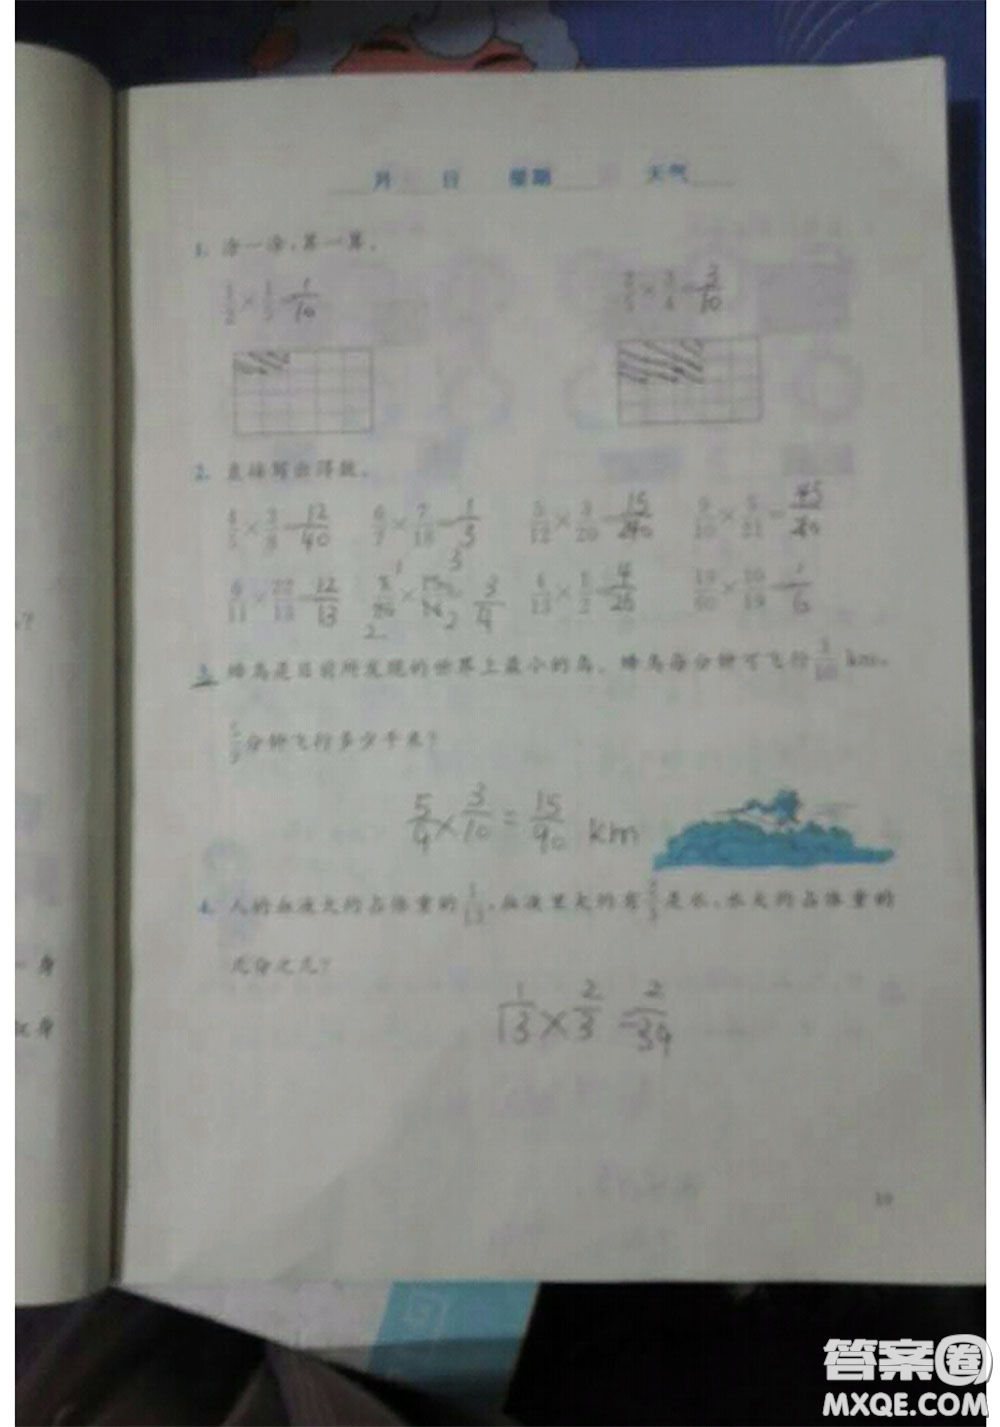 月 日 星期 天气
1. 涂一涂,算一算。
1/2 × 1/5 = 1/10 2/5 × 3/4 = 3/10
2. 直接写出得数。
4/5 × 3/8 = 12/40 6/7 × 7/18 = 1/3 5/12 × 3/20 = 15/240 9/10 × 5/21 = 45/210
6/11 × 22/13 = 12/13 1 3 4/13 × 1/2 = 4/26 × 10/19 = 1/6
2 2 3/4
3. 蜂鸟是目前所发现的世界上最小的鸟。蜂鸟每分钟可飞行3/10 km。
5/9分钟飞行多少千米?
5/9 × 3/10 = 15/90 km
4. 人的血液大约占体重的1/13,血液里大约有2/3是水,水大约占体重的
几分之几?
1/13 × 2/3 = 2/39
?
一身
以身
19
答案圈
MXQE.COM